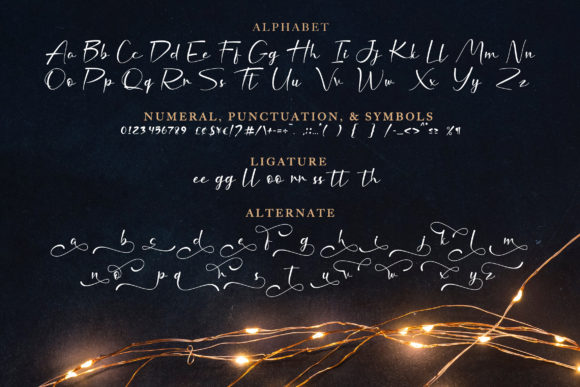 ALPHABET
Aa Bb Cc Dd Ee Ff Gg Hh Ii Jj Kk Ll Mm Nn
Oo Pp Qq Rr Ss Tt Uu Vv Ww Xx Yy Zz
NUMERAL, PUNCTUATION, & SYMBOLS
0123456789
LIGATURE
ee gg ll oo rr ss tt th
ALTERNATE
a b c d e f g h i j k l m
n o p q r s t u v w x y z